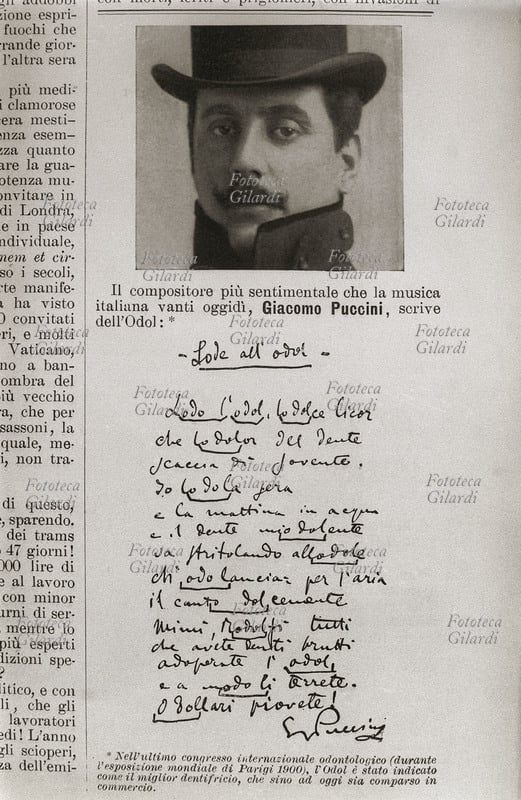 gli addobbi
zione espri-
fuochi che
rande gior-
l'altra sera
più medi-
i clamorose
cera mesti-
enza esem-
zza quanto
are la gua-
otenza mu-
onvitare in
di Londra,
e in paese
ndividuale,
nem et cir-
so i secoli,
rte manife-
a ha visto
0 convitati
eri, e molti
Vaticano,
no a ban-
ombra del
iù vecchio
ra, che per
sassoni, la
quale, me-
i, non tra-
di questo,
e, sparendo.
dei trams
47 giorni!
000 lire di
e al lavoro
con minor
urni di ser-
mentre lo
più esperti
dizioni spe-
?
litico, e con
li, che gli
lavoratori
edi! L'anno
gli scioperi,
za dell'emi-
con morti, feriti e prigionieri, con invasioni di
Il compositore più sentimentale che la musica
italiana vanti oggidì, Giacomo Puccini, scrive
dell'Odol: *
- Lode all'odol -
Lodo l'odol, lodolce licor
che lo dolor del dente
scaccia di sovente.
Io lo dola sera
e la mattina in acqua
e il dente mio dolente
va stritolando allodole
ch'odo lanciar per l'aria
il canto dolcemente
Mimi, Rodolfi tutti
che avete denti brutti
adoperate l'odol,
e a modo li terrete.
O dollari piovete!
G Puccini
* Nell'ultimo congresso internazionale odontologico (durante
l'esposizione mondiale di Parigi 1900), l'Odol è stato indicato
come il miglior dentifricio, che sino ad oggi sia comparso in
commercio.
Fototeca
Gilardi